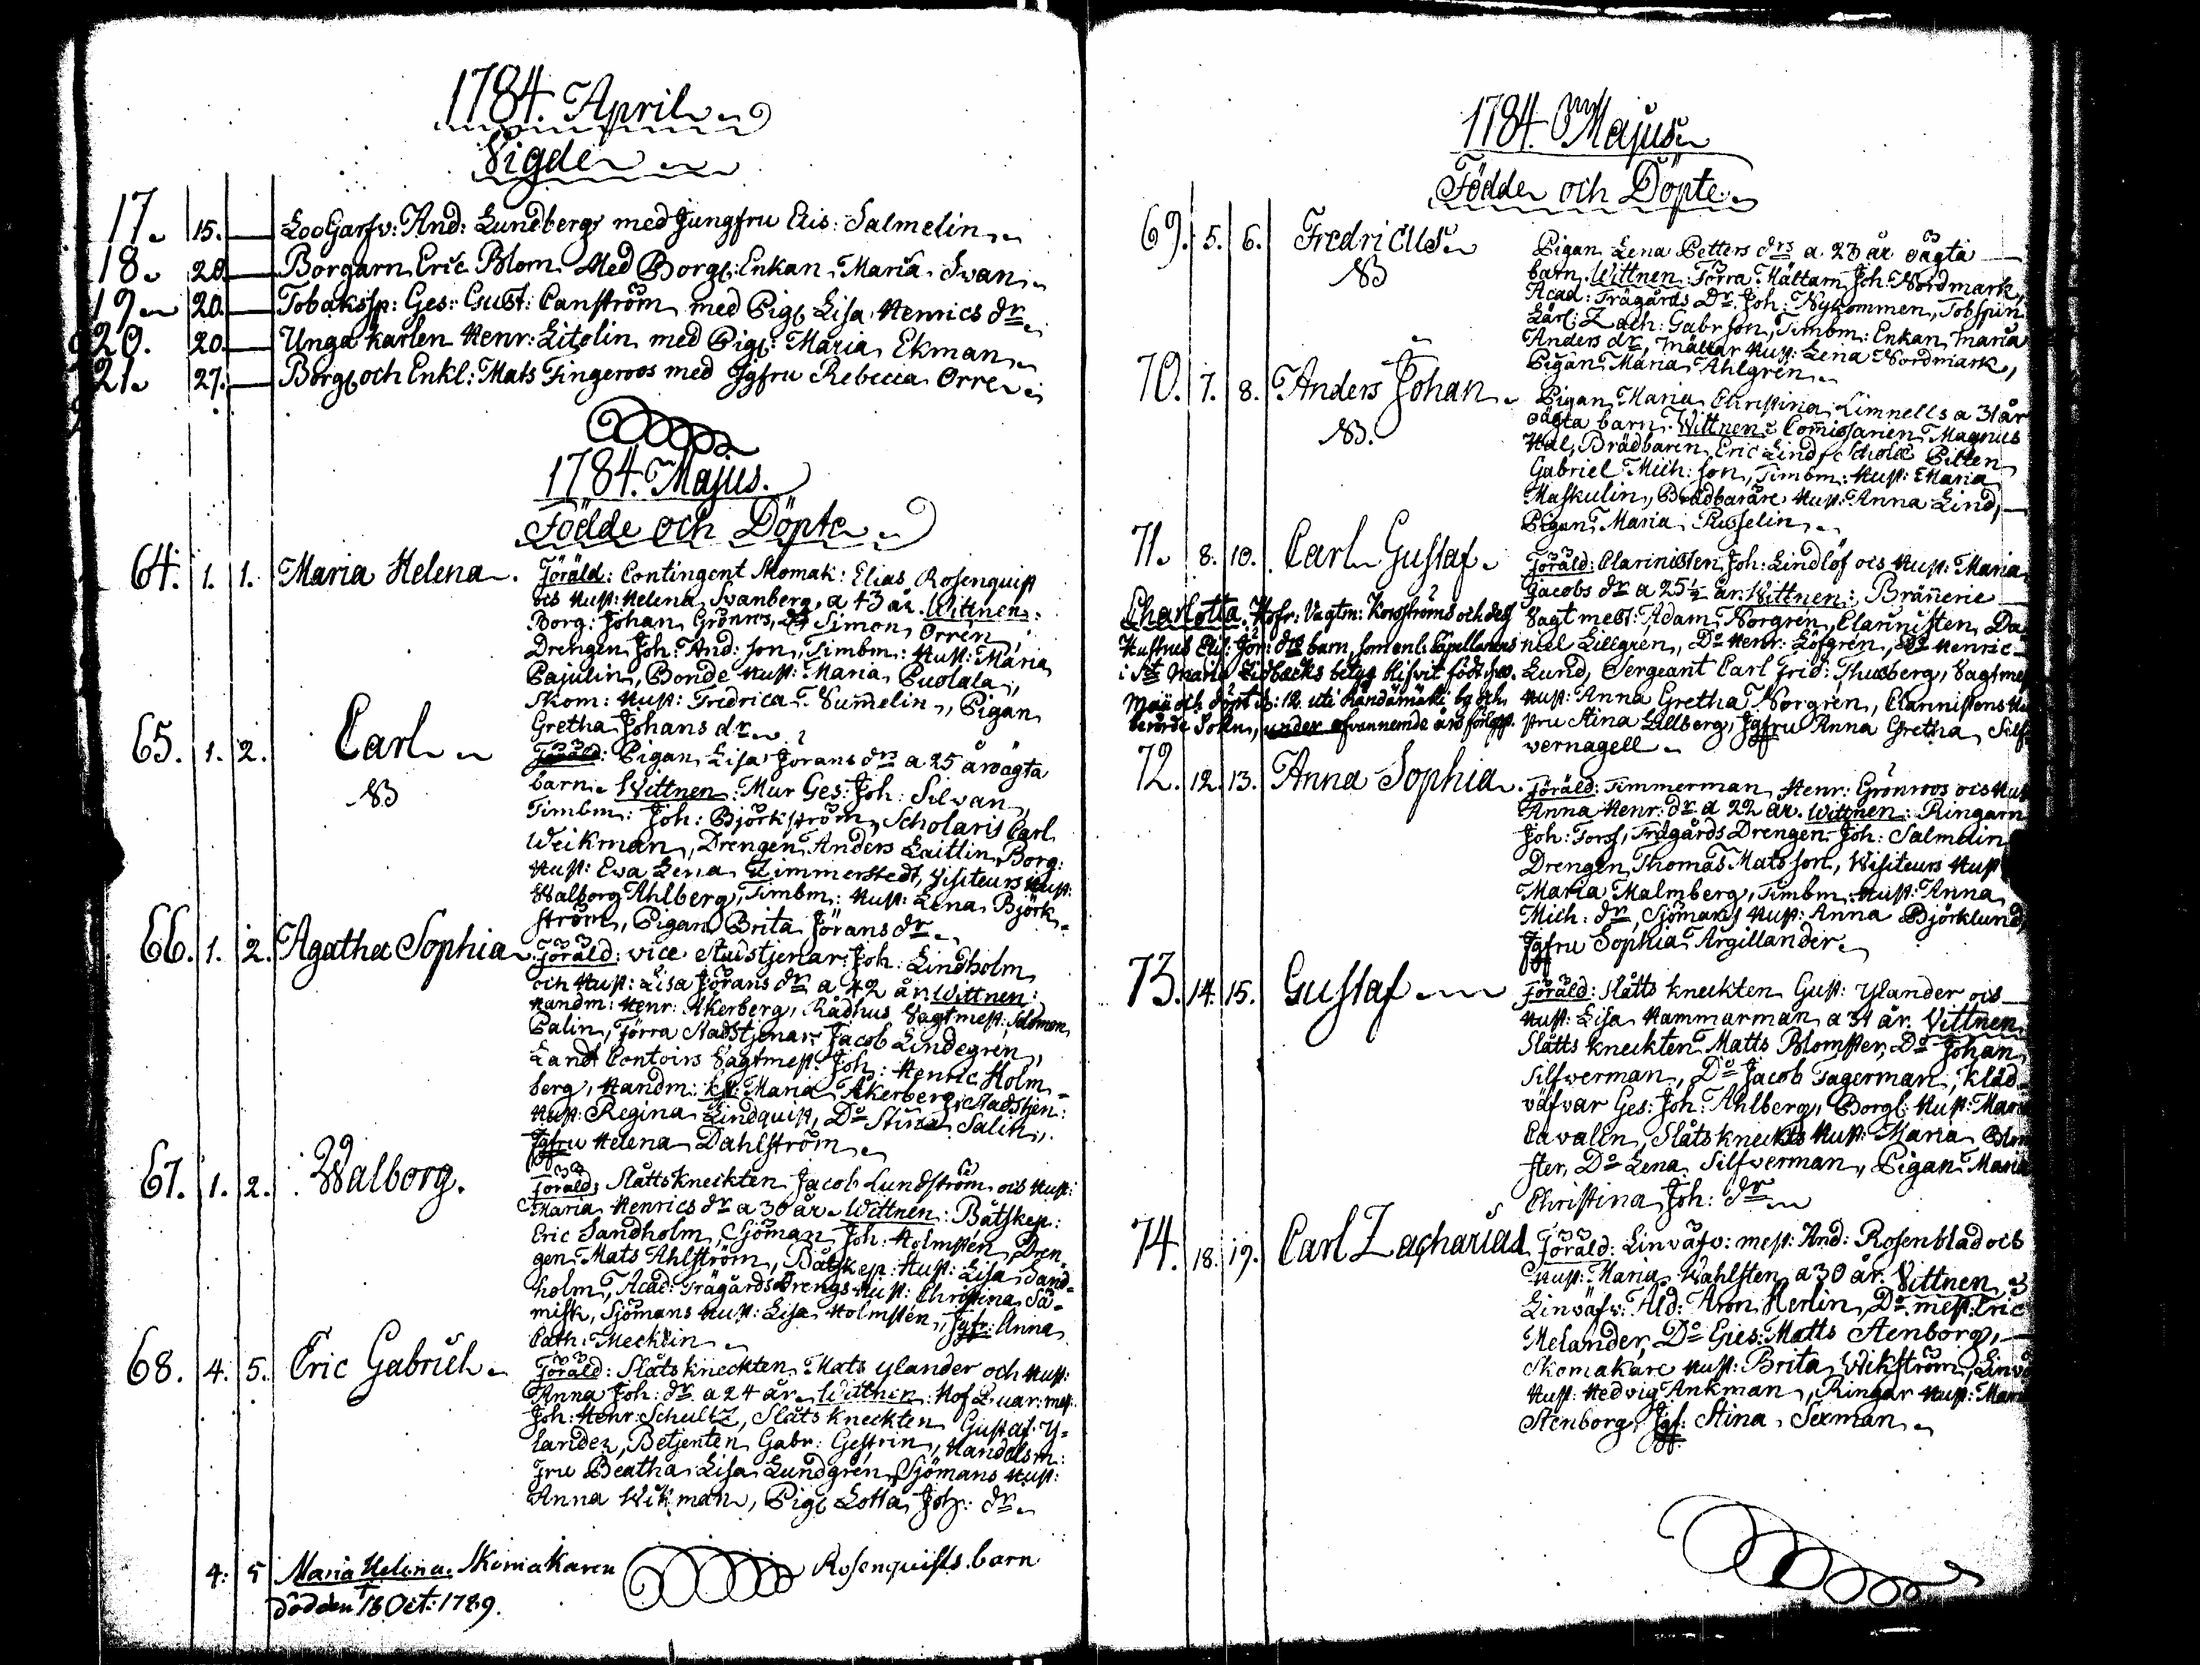 1784. April
Vigde
17. 15. — LooGarfv: And: Lundberg med Jungfru Elis: Salmelin
18. 20. — Borgarn Eric Blom Med Borg: Enkan Maria Svan
19. 20. — Tobakssp: Ges: Gust: Canström med Pig: Lisa Henrics dr
20. 20. — Unga karlen Henr: Litolin med Pig: Maria Ekman
21. 27. — Borg: och Enkl: Mats Tingeroos med Jgfru Rebecca Orre
1784. Majus.
Födde och Döpte
64. 1. 1. Maria Helena. Föräld: Contingent Skomak: Elias Rosenquist
ocs Hust: Helena Svanberg, a 43 år. Wittnen:
Borg: Johan Grönros, Simon Orrén,
Drengen Joh: And: son, Timbm: Hust: Maria
Pajulin, Bonde Hust: Maria Puolala,
Skom: Hust: Fredrica Sumelin, Pigan
Gretha Johans dr
65. 1. 2. Carl
NB
Föräld: Pigan Lisa Jörans drs a 25 år oägta
barn. Wittnen: Mur Ges: Joh: Silvan,
Timbm: Joh: Björkström, Scholaris Carl
Weikman, Drengen Anders Laitlin, Borg:
Hust: Eva Lena Zimmerstedt, Visiteurs Hust:
Walborg Ahlberg, Timbm: Hust: Lena Björk-
ström, Pigan Brita Jörans dr
66. 1. 2. Agatha Sophia. Föräld: vice Stadstjenar: Joh: Lindholm
och Hust: Lisa Jörans dr a 42 år. Wittnen:
Handm: Henr: Åkerberg, Rådhus Vagtmest: Salomon
Palin, Förra Stadstjenar: Jacob Lindegrén,
Landt Contoirs Vagtmest: Joh: Henric Holm-
berg, Handm: Maria Åkerberg, Stadstjen:
Hust: Regina Lindquist, Do Stina Salin,
Jgfru Helena Dahlström
67. 1. 2. Walborg.
Föräld: Slåttskneckten Jacob Lundström ocs Hust:
Maria Henrics dr a 30 år. Wittnen: Båtskep:
Eric Sandholm, Sjöman Joh: Holmstén, Dren-
gen Mats Ahlström, Båtskep: Hust: Lisa Sand-
holm, Acad: Trägårds Drengs Hust: Christina Sä-
misk, Sjömans Hust: Lisa Holmstén, Jgfr: Anna
Cath: Mecklin
68. 4. 5. Eric Gabriel. Föräld: Slåtskneckten Mats Ylander och Hust:
Anna Joh: dr a 24 år. Wittnen: Hof Quar: mest:
Joh: Henr: Schultz, Slåtskneckten Gustaf Y-
lander, Betjenten Gabr: Gestrin, Handelsm:
Fru Beatha Lisa Lundgrén, Sjömans Hust:
Anna Wikman, Pig: Lotta Joh: dr
4. 5 Maria Helena. Skomakaren Rosenquists barn
död den 18 Oct: 1789.
1784. Majus
Födde och Döpte
69. 5. 6. Fredricus
NB
Pigan Lena Petters drs a 23 år oägta
barn. Wittnen: Förra Mältarn Joh: Nordmark,
Acad: Trägårds Dr: Joh: Nykommen, Tobspin:
Carl Zach: Gabr: son, Timbm: Enkan Maria
Anders dr, Mältar Hust: Lena Nordmark,
Pigan Maria Ahlgrén
70. 7. 8. Anders Johan
NB.
Pigan Maria Christina Limnells a 31 år
oägta barn. Wittnen: Comissarien Magnus
Hal, Brädbaren Eric Lind, Scholæ Pilten
Gabriel Mich: son, Timbm: Hust: Maria
Maskulin, Brädbarare Hust: Anna Lind,
Pigan Maria Rosselin
71. 8. 10. Carl Gustaf. Föräld: Clarinisten Joh: Lindlöf ocs Hust: Maria
Jacobs dr a 25½ år. Wittnen: Bränneri
Vagtmest: Adam Norgrén, Clarinisten Da-
niel Lillgrén, Do Henr: Löfgrén, Do Henric
Lund, Sergeant Carl Frid: Thusberg, Vagtmest
Hust: Anna Gretha Norgrén, Clarinistens Hu
stru Stina Lillberg, Jgfru Anna Gretha Silf
vernagell
Charlotta. Hofr: Vagtm: Korsströms och dess
Hustrus Elis: Jör: drs barn, som enl: Capellanens
i St: Maria Lidbäcks betyg blifvit född
Maii och döpt d: 12. uti Händämäki by och
berörde Sokn, under ofvannemde års förlopp.
72. 12. 13. Anna Sophia. Föräld: Timmerman Henr: Grönroos ocs Hust
Anna Henr: dr a 22 år. Wittnen: Ringarn
Joh: Torss, Trägårds Drengen Joh: Salmelin
Drengen Thomas Mats son, Visiteurs Hust
Maria Malmberg, Timbm: Hust: Anna
Mich: dr, Sjömans Hust: Anna Björklund,
Jgfru Sophia Argillander
73. 14. 15. Gustaf Föräld: Slåtts kneckten Gust: Ylander ocs
Hust: Lisa Hammarman a 31 år. Vittnen
Slåtts kneckten Matts Blomster, Do Johan
Silfverman, Do Jacob Tagerman, Kläd-
väfvar Ges: Joh: Ahlberg, Borgl: Hust: Maria
Cavalin, Slåtskneckts Hust: Maria Blom
ster, Do Lena Silfverman, Pigan Maria
Christina Joh: dr
74. 18. 19. Carl Zacharias Föräld: Linväfv: mest: And: Rosenblad ocs
Hust: Maria Wahlsten a 30 år. Vittnen
Linväfv: Åld: Aron Herlin, Do mest: Eric
Melander, Do Gies: Matts Stenborg,
Skomakare Hust: Brita Wikström, Linvä
Hust: Hedvig Ankman, Ringar Hust: Maria
Stenborg, Jgf: Stina Sexman